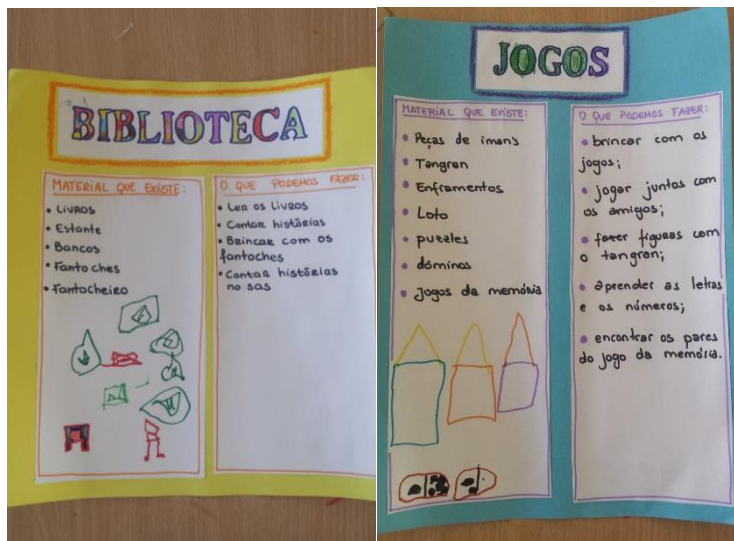 BIBLIOTECA
MATERIAL QUE EXISTE:
• LIVROS
• Estante
• Bancos
• Fantoches
• Fantocheiro
O QUE PODEMOS FAZER:
• Ler os Livros
• Contar histórias
• Brincar com os
fantoches
• Contar histórias
no sas
JOGOS
MATERIAL QUE EXISTE:
• Peças de iman's
• Tangran
• Enframentos
• Loto
• puzzles
• dóminos
• Jogos da memória
O QUE PODEMOS FAZER:
• brincar com os
jogos;
• jogar juntos com
os amigos;
• fazer figuras com
o tangran;
• aprender as letras
e os números;
• encontrar os pares
do jogo da memória.